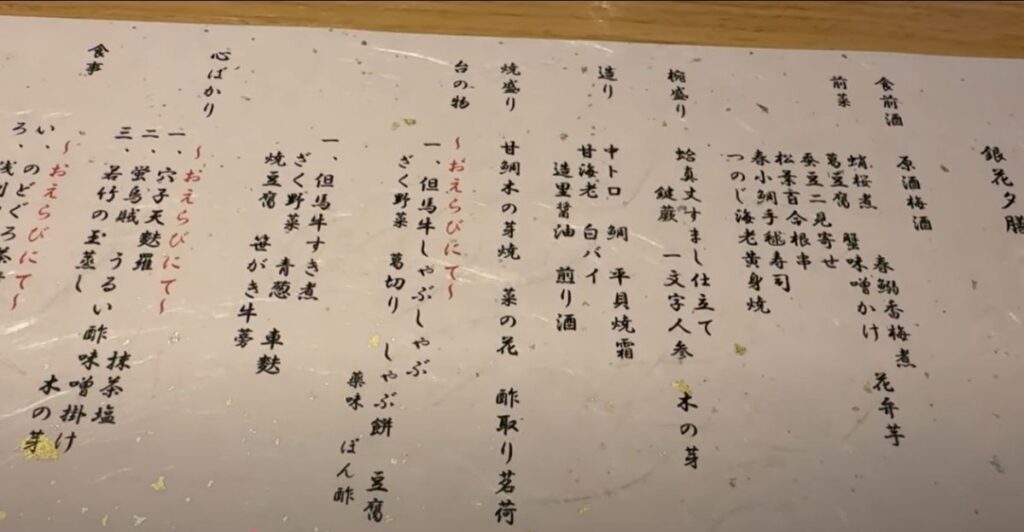 銀花夕膳
食前酒
原酒梅酒
前菜
蛸桜煮 春鰯香梅煮 花弁芋
葛豆腐 蟹味噌かけ
蚕豆二見寄せ
松葉百合根串
春小鯛手毬寿司
つのじ海老黄身焼
椀盛り
蛤真丈すまし仕立て
鍵蕨 一文字人参 木の芽
造り
中トロ 鯛 平貝焼霜
甘海老 白バイ
造里醤油 煎り酒
焼盛り
甘鯛木の芽焼 菜の花 酢取り茗荷
台の物
～おえらびにて～
一、但馬牛しゃぶしゃぶ
ざく野菜 葛切り しゃぶ餅 豆腐
薬味 ぽん酢
一、但馬牛すき煮
ざく野菜 青葱 車麩
焼豆腐 笹がき牛蒡
心ばかり
～おえらびにて～
一、穴子天麩羅 抹茶塩
二、蛍烏賊 うるい酢味噌掛け
三、若竹の玉蒸し 木の芽
食事
～おえらびにて～
い、のどぐろ茶
ろ、浅利